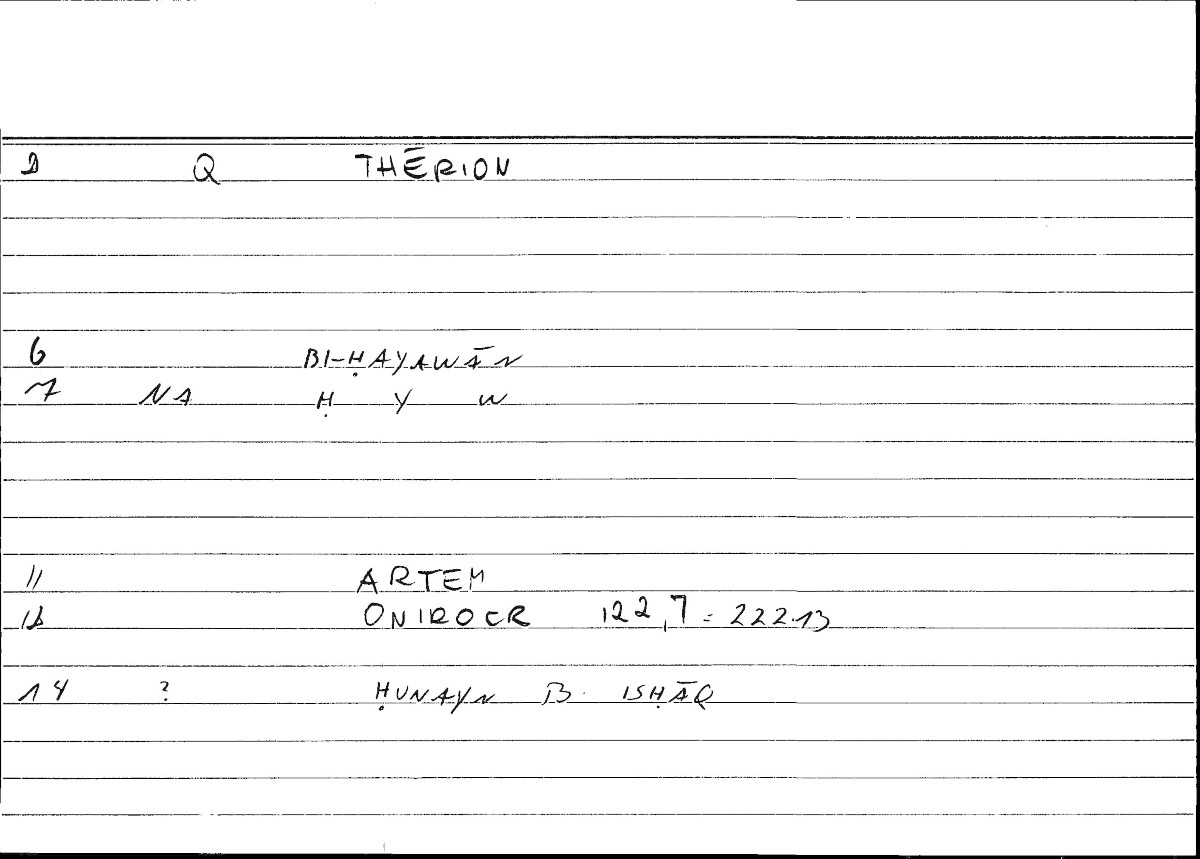 2 Q THĒRION
6 BI-ḤAYAWĀN
7 NA Ḥ Y W
11 ARTEM
12 ONIROCR 122,7 = 222.13
14 ? ḤUNAYN B. ISḤĀQ